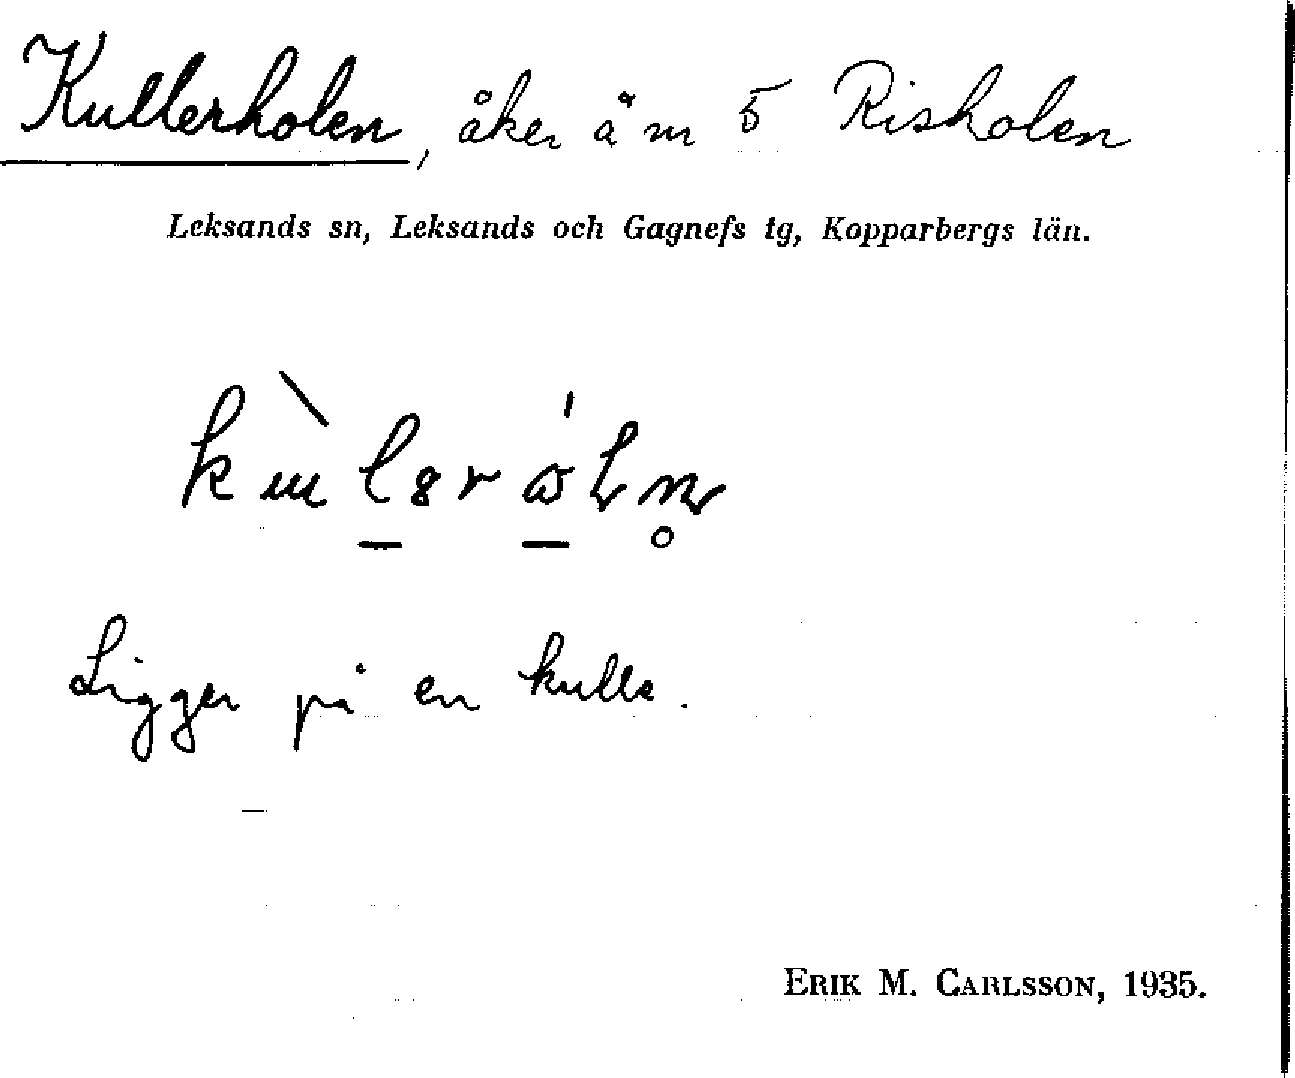 Kullerholen, åker å m 5 Risholen
Leksands sn, Leksands och Gagnefs tg, Kopparbergs län.
Ligger på en kulle.
ERIK M. CARLSSON, 1935.